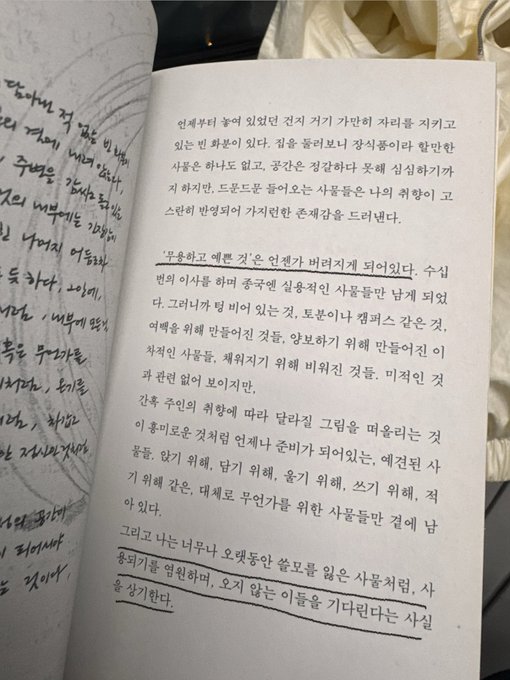 담아낸 적 없는 빈 화분
곁에 내려앉는다,
주변을 감싸고 돌고 있는
내부에는
나머지 어둠
듯하다, 그 안에,
처럼, 내부에
혹은 무언가를
처럼, 온기를
처럼, 차갑고
공간에
되어서야
것이다,
언제부터 놓여 있었던 건지 거기 가만히 자리를 지키고
있는 빈 화분이 있다. 집을 둘러보니 장식품이라 할만한
사물은 하나도 없고, 공간은 정갈하다 못해 심심하기까
지 하지만, 드문드문 들어오는 사물들은 나의 취향이 고
스란히 반영되어 가지런한 존재감을 드러낸다.
‘무용하고 예쁜 것’은 언젠가 버려지게 되어있다. 수십
번의 이사를 하며 종국엔 실용적인 사물들만 남게 되었
다. 그러니까 텅 비어 있는 것, 토분이나 캔퍼스 같은 것,
여백을 위해 만들어진 것들, 양보하기 위해 만들어진 이
차적인 사물들, 채워지기 위해 비워진 것들. 미적인 것
과 관련 없어 보이지만,
간혹 주인의 취향에 따라 달라질 그림을 떠올리는 것
이 흥미로운 것처럼 언제나 준비가 되어있는, 예견된 사
물들. 앉기 위해, 담기 위해, 울기 위해, 쓰기 위해, 적
기 위해 같은, 대체로 무언가를 위한 사물들만 곁에 남
아 있다.
그리고 나는 너무나 오랫동안 쓸모를 잃은 사물처럼, 사
용되기를 염원하며, 오지 않는 이들을 기다린다는 사실
을 상기한다.